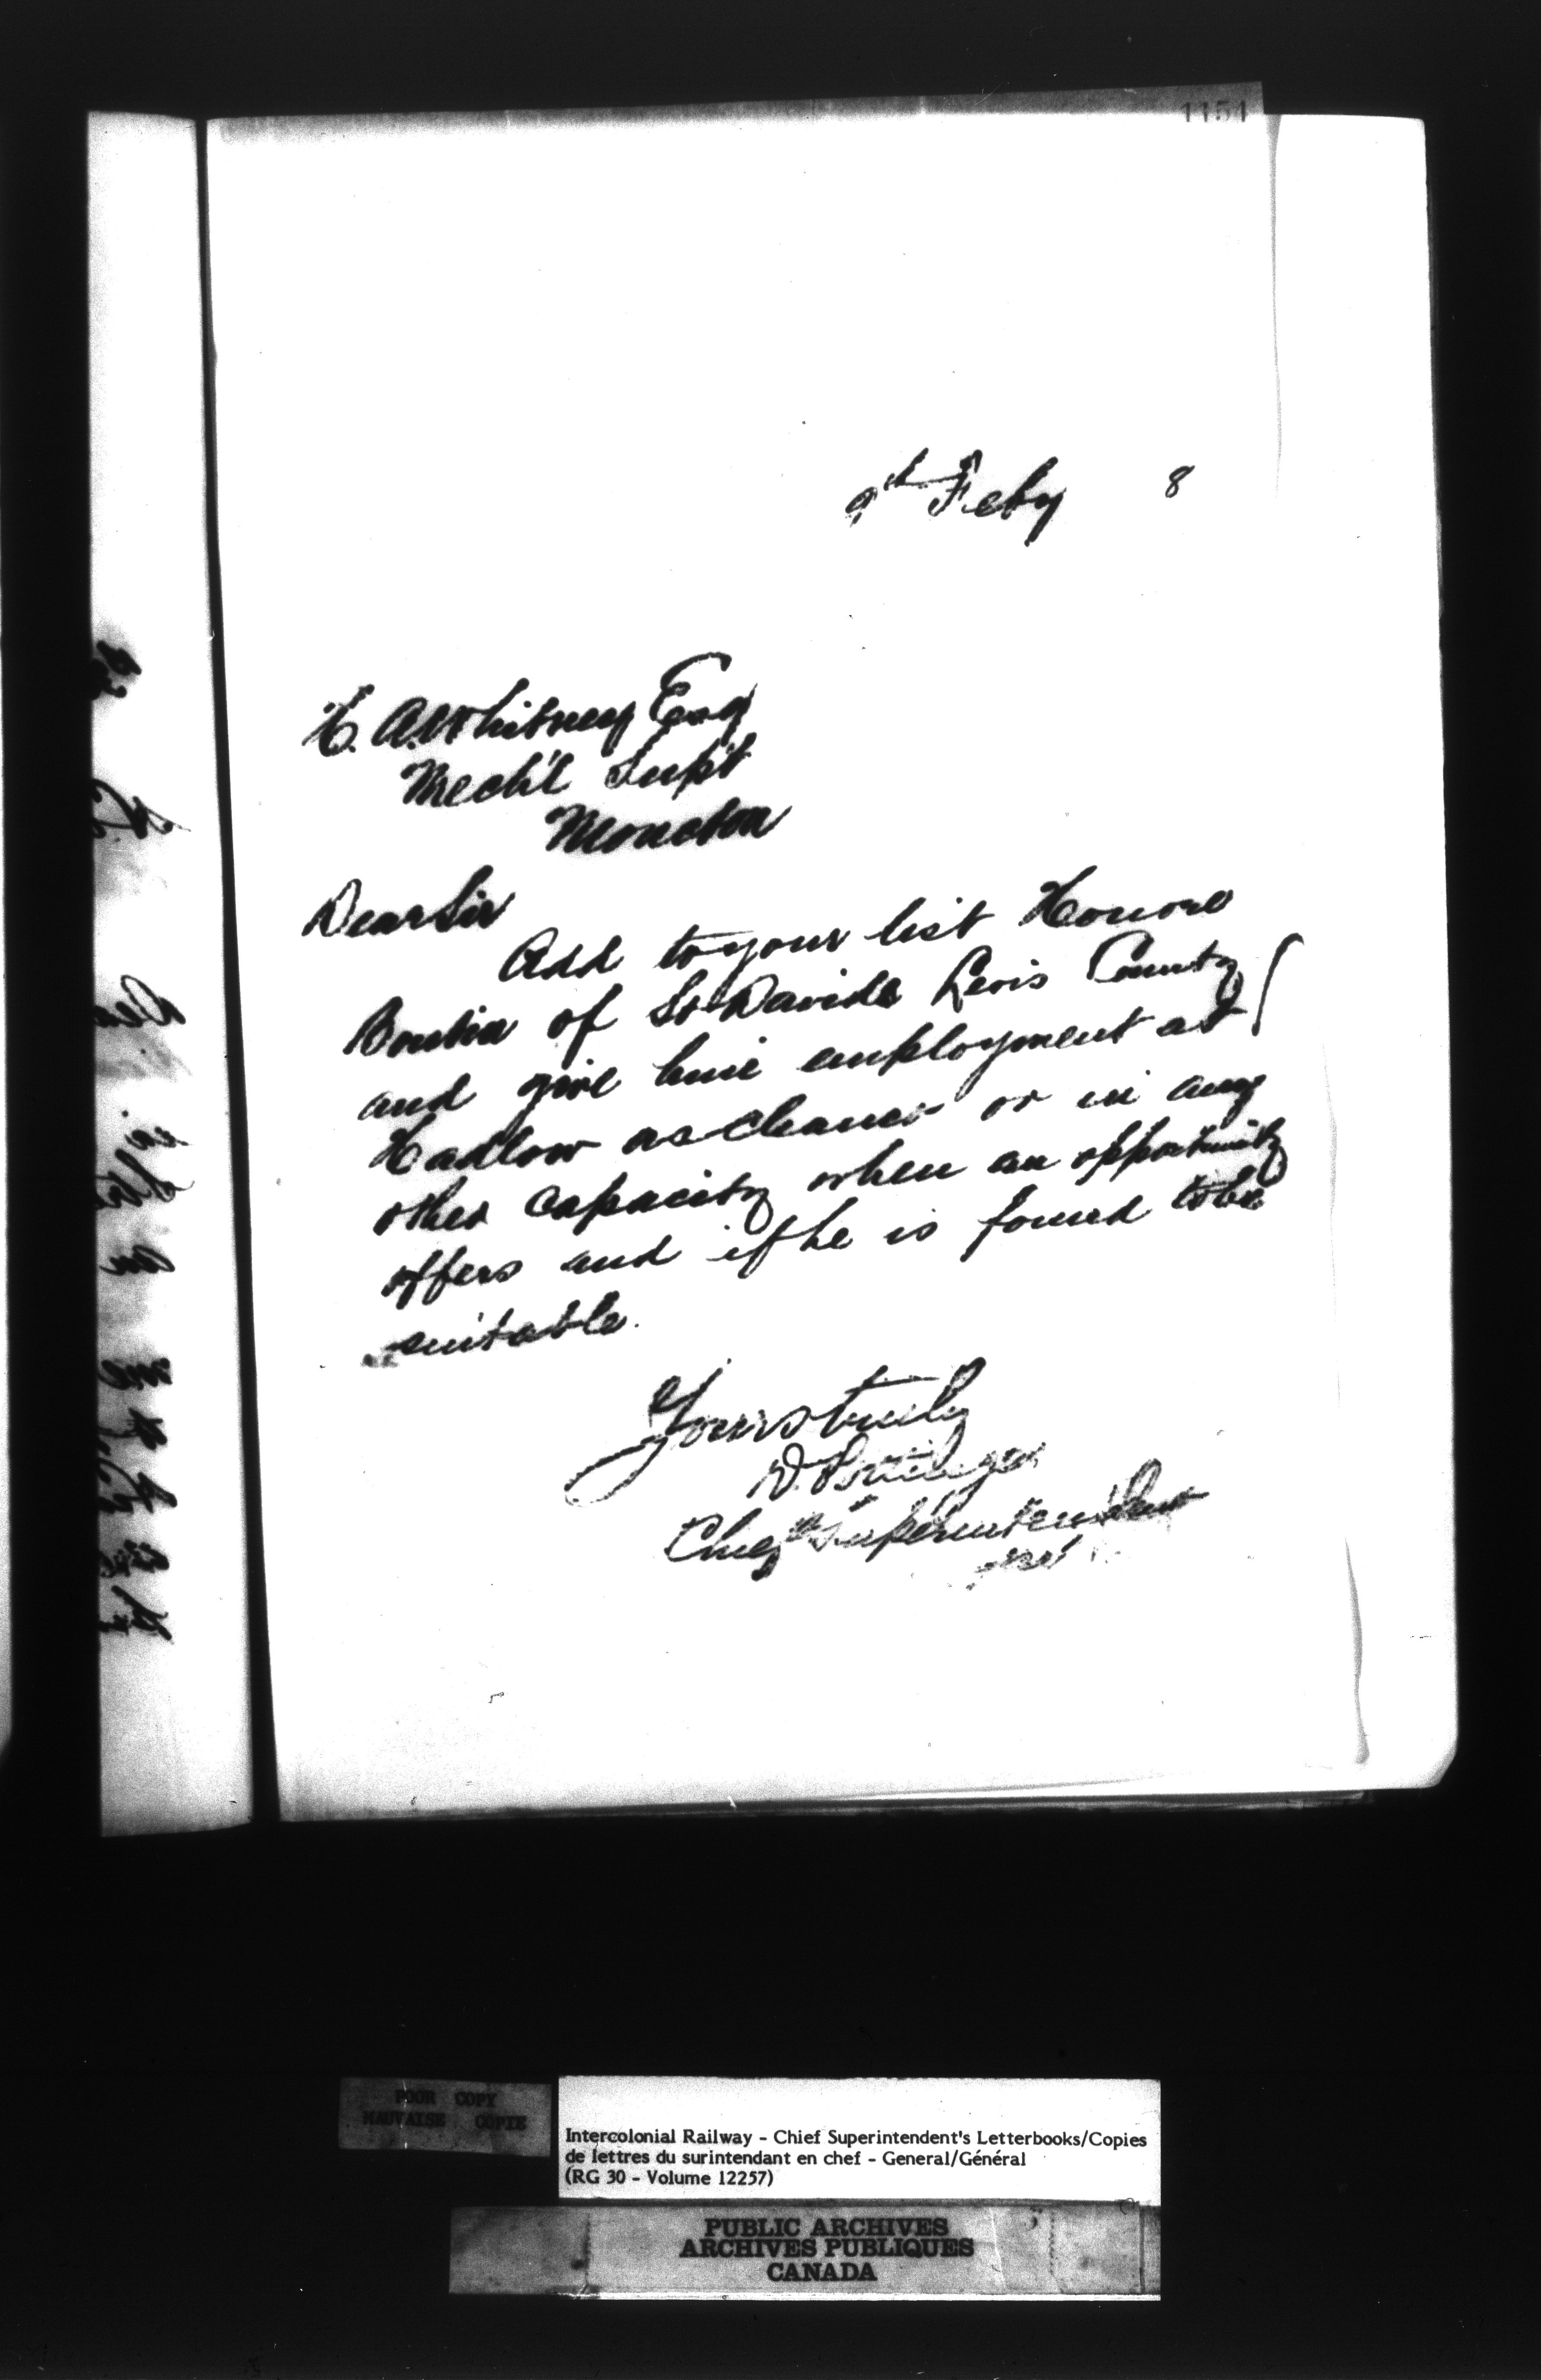 1154
9th Feby 8
H. A. Whitney Esq
Mech'l Supt
Moncton
Dear Sir
Add to your list Honore
of St Davids Levis County
and give him employment at
Hadlow as cleaner or in any
other capacity when an opportunity
offers and if he is found to be
suitable.
Yours truly
D. Pottinger
Chief Superintendent
POOR COPY
MAUVAISE COPIE
Intercolonial Railway - Chief Superintendent's Letterbooks/Copies
de lettres du surintendant en chef - General/Général
(RG 30 - Volume 12257)
PUBLIC ARCHIVES
ARCHIVES PUBLIQUES
CANADA